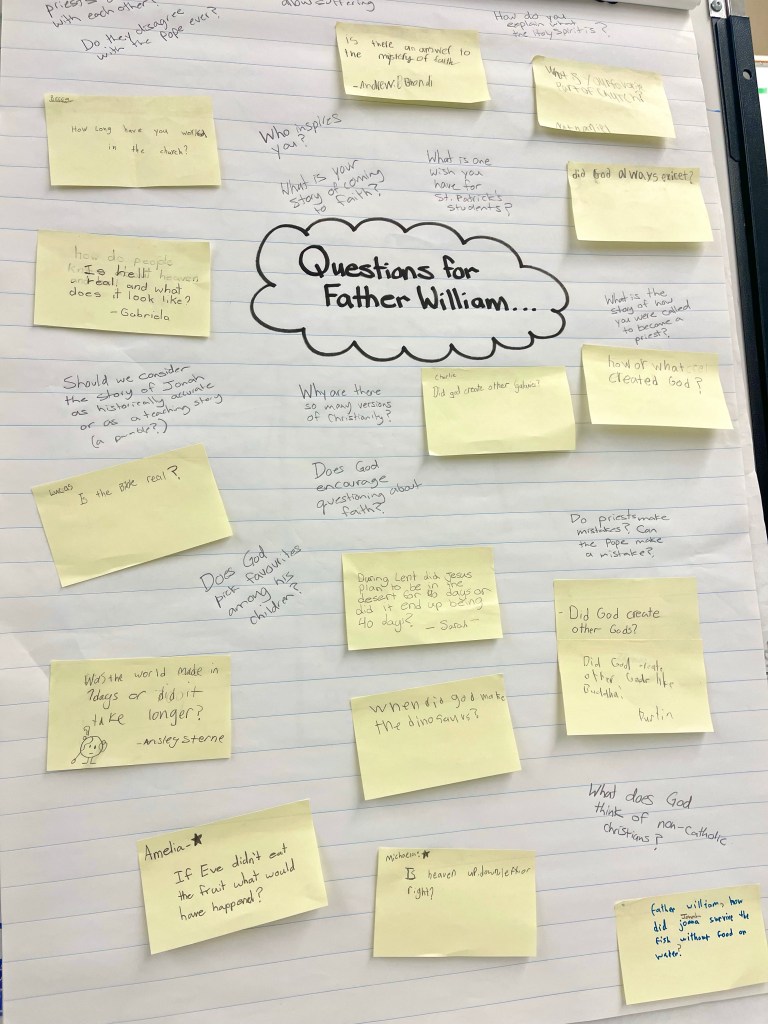 priests
with each other?
Do they disagree
with the Pope ever?
How do you
explain what
the Holy Spirit is?
Is there an answer to
the mystery of faith
What is
part of
How long have you worked
in the church?
Who inspires
you?
What is your
story of coming
to faith?
What is one
wish you
have for
St. Patrick's
students?
did God always exicet?
how do people
Is hell heaven
real and what
does it look like?
- Gabriela
Questions for
Father William...
What is the
story of how
you were called
to become a
priest?
how or what
created God?
Should we consider
the story of Jonah
as historically accurate
or as a teaching story
(a parable?)
Why are there
so many versions
of Christianity?
Charlie
Did god create other
Lucas
Is the Bible real?
Does God
encourage
questioning about
faith?
Do priests make
mistakes? Can
the Pope make
a mistake?
Does God
pick favourites
among his
children?
During Lent did Jesus
plan to be in the
desert for 40 days or
did it end up being
40 days?
- Sarah -
- Did God create
other Gods?
Did God create
other Gods like
Buddha?
Was the world made in
7days or did it
take longer?
- Ansley Sterne
when did god make
the dinosaurs?
What does God
think of non-Catholic
christians?
Amelia-★
If Eve didn't eat
the fruit what would
have happend?
Is heaven up,down,left or
right?
father william, how
did Jonah survive the
fish without food or
water?